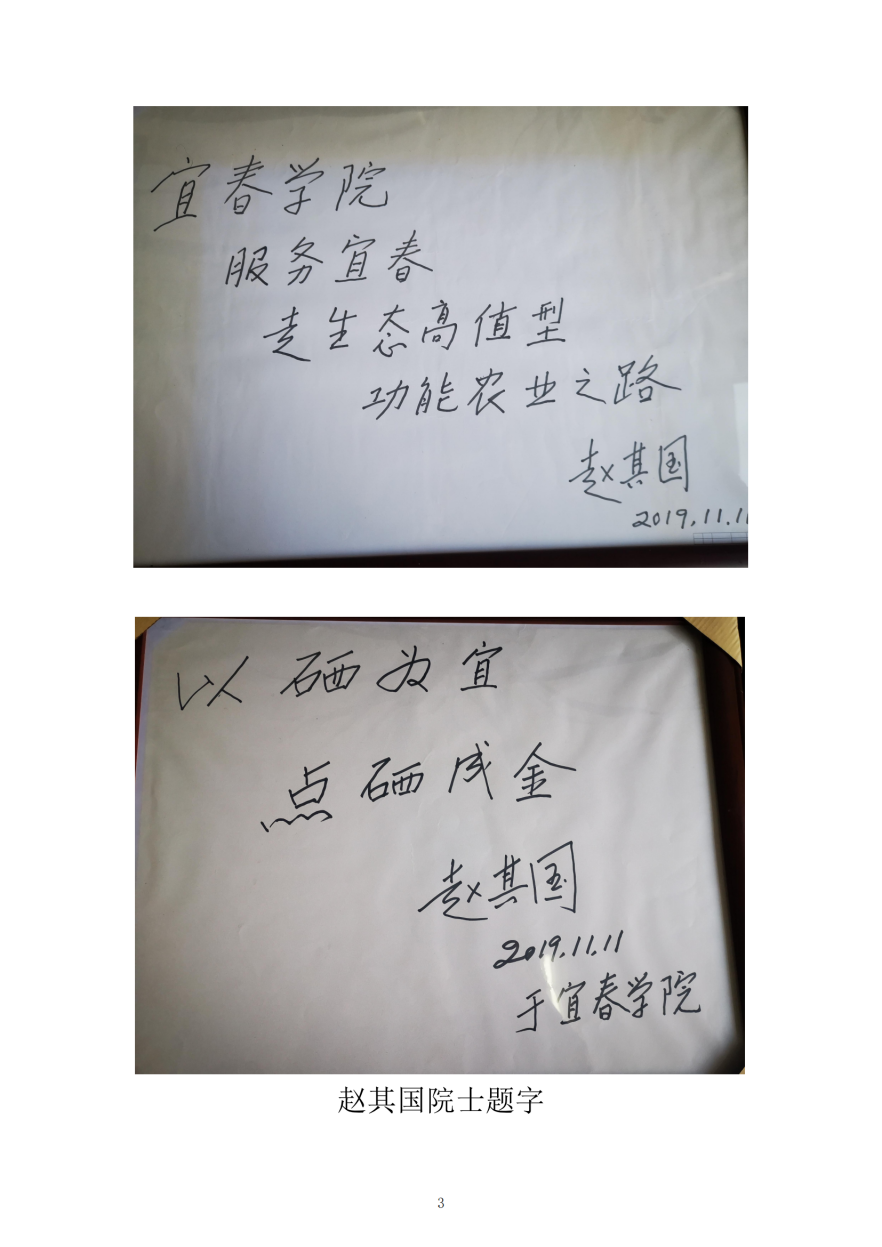 宜春学院
服务宜春
走生态高值型
功能农业之路
赵其国
2019.11.11
以硒为宜
点硒成金
赵其国
2019.11.11
于宜春学院
赵其国院士题字
3